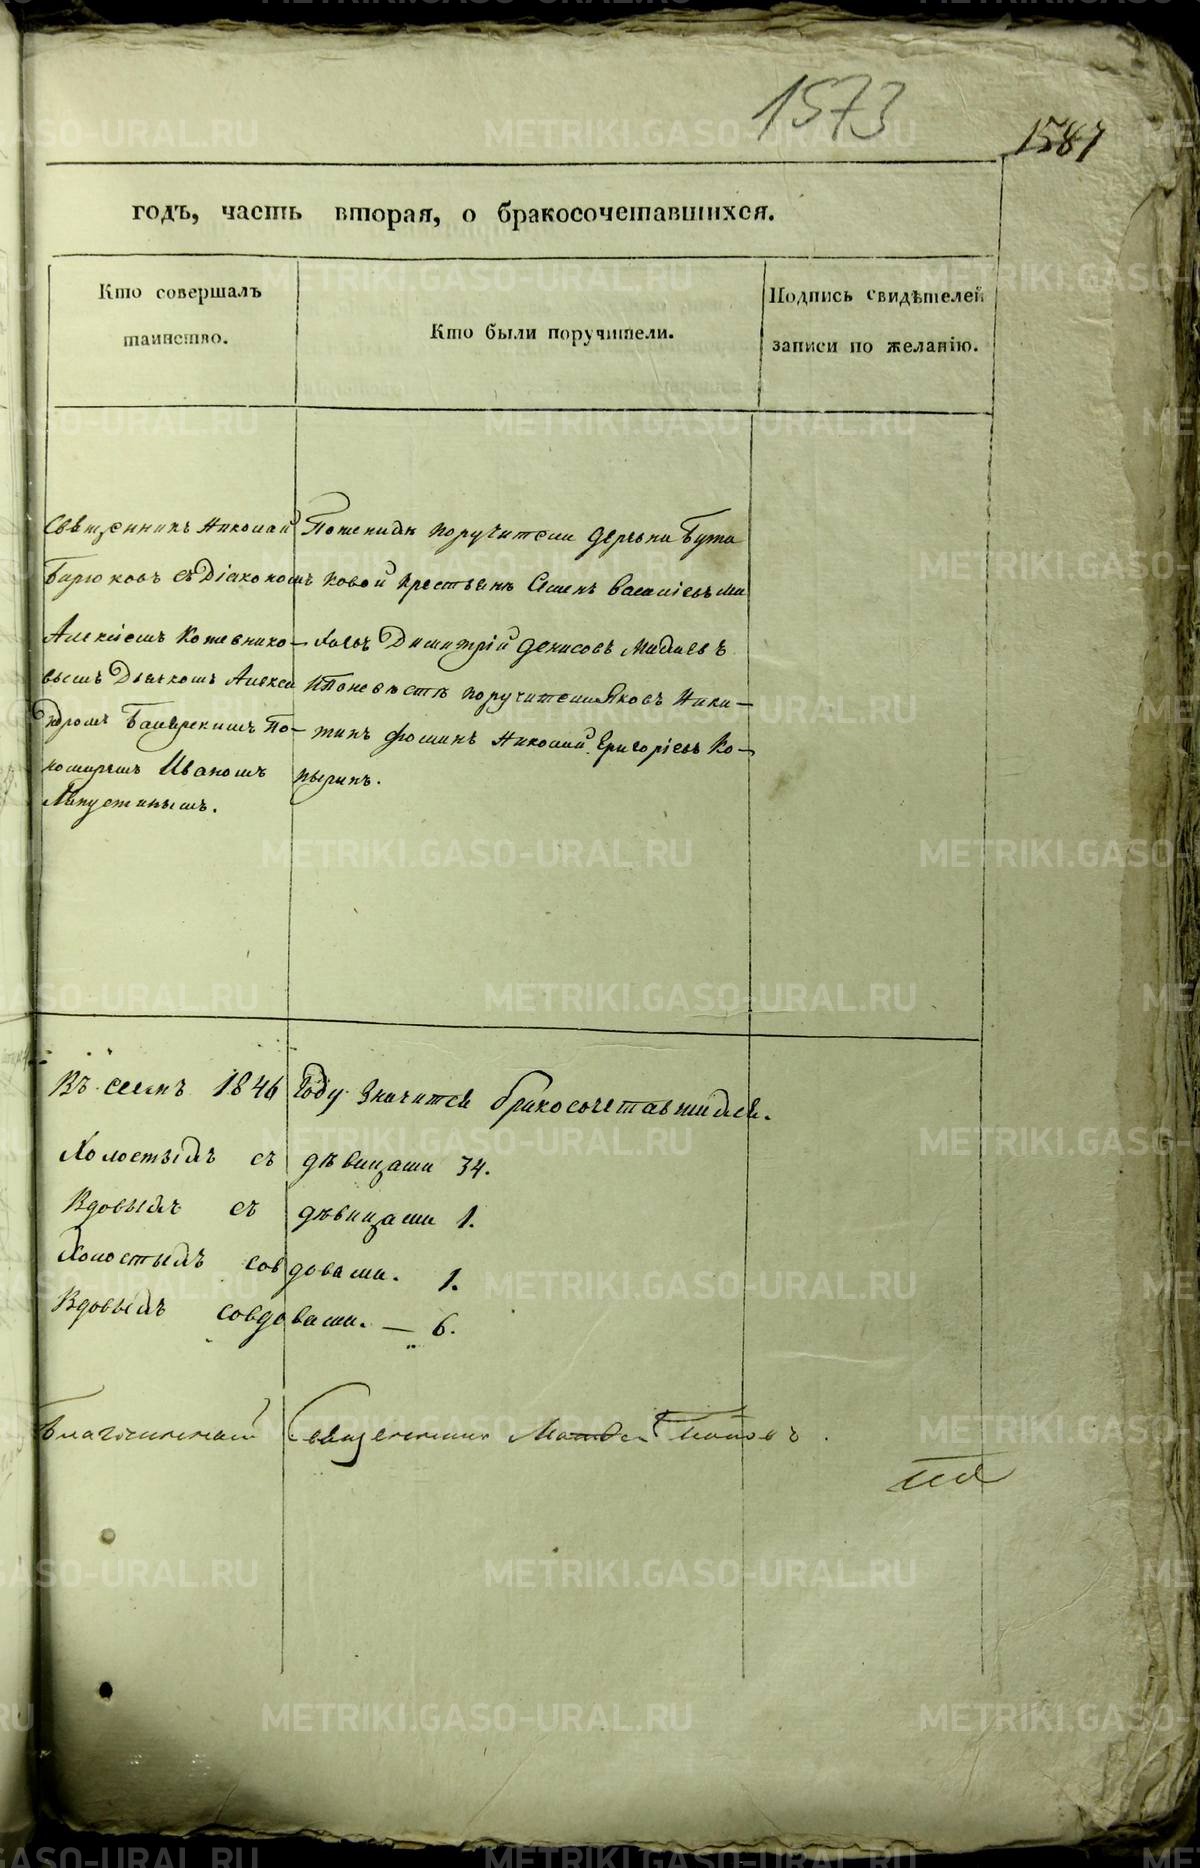 1573
1587
годъ, часть вторая, о бракосочетавшихся.
Кто совершалъ
таинство.
Кто были поручители.
Подпись свидѣтелей
записи по желанію.
Священникъ Николай
Бирюковъ съ Діакономъ
Алексіемъ Кожевнико-
вымъ Дьячкомъ Алексан
дромъ По-
номаремъ Иваномъ
Августинымъ.
Поженихѣ поручители деревни Бута
ковой крестьянъ Семенъ Василіевъ Ми
Димитрій Денисовъ
Ипоневѣстѣ поручители Яковъ Ники-
тинъ Фоминъ Николай Григоріевъ Ко-
пыринъ.
Въ семъ 1846 Году значится бракосочетавшихся.
Холостыхъ съ дѣвицами 34.
Вдовыхъ съ дѣвицами 1.
Холостыхъ совдовами. 1.
Вдовыхъ совдовами. — 6.
Благочинный Священникъ Поповъ.
METRIKI.GASO-URAL.RU